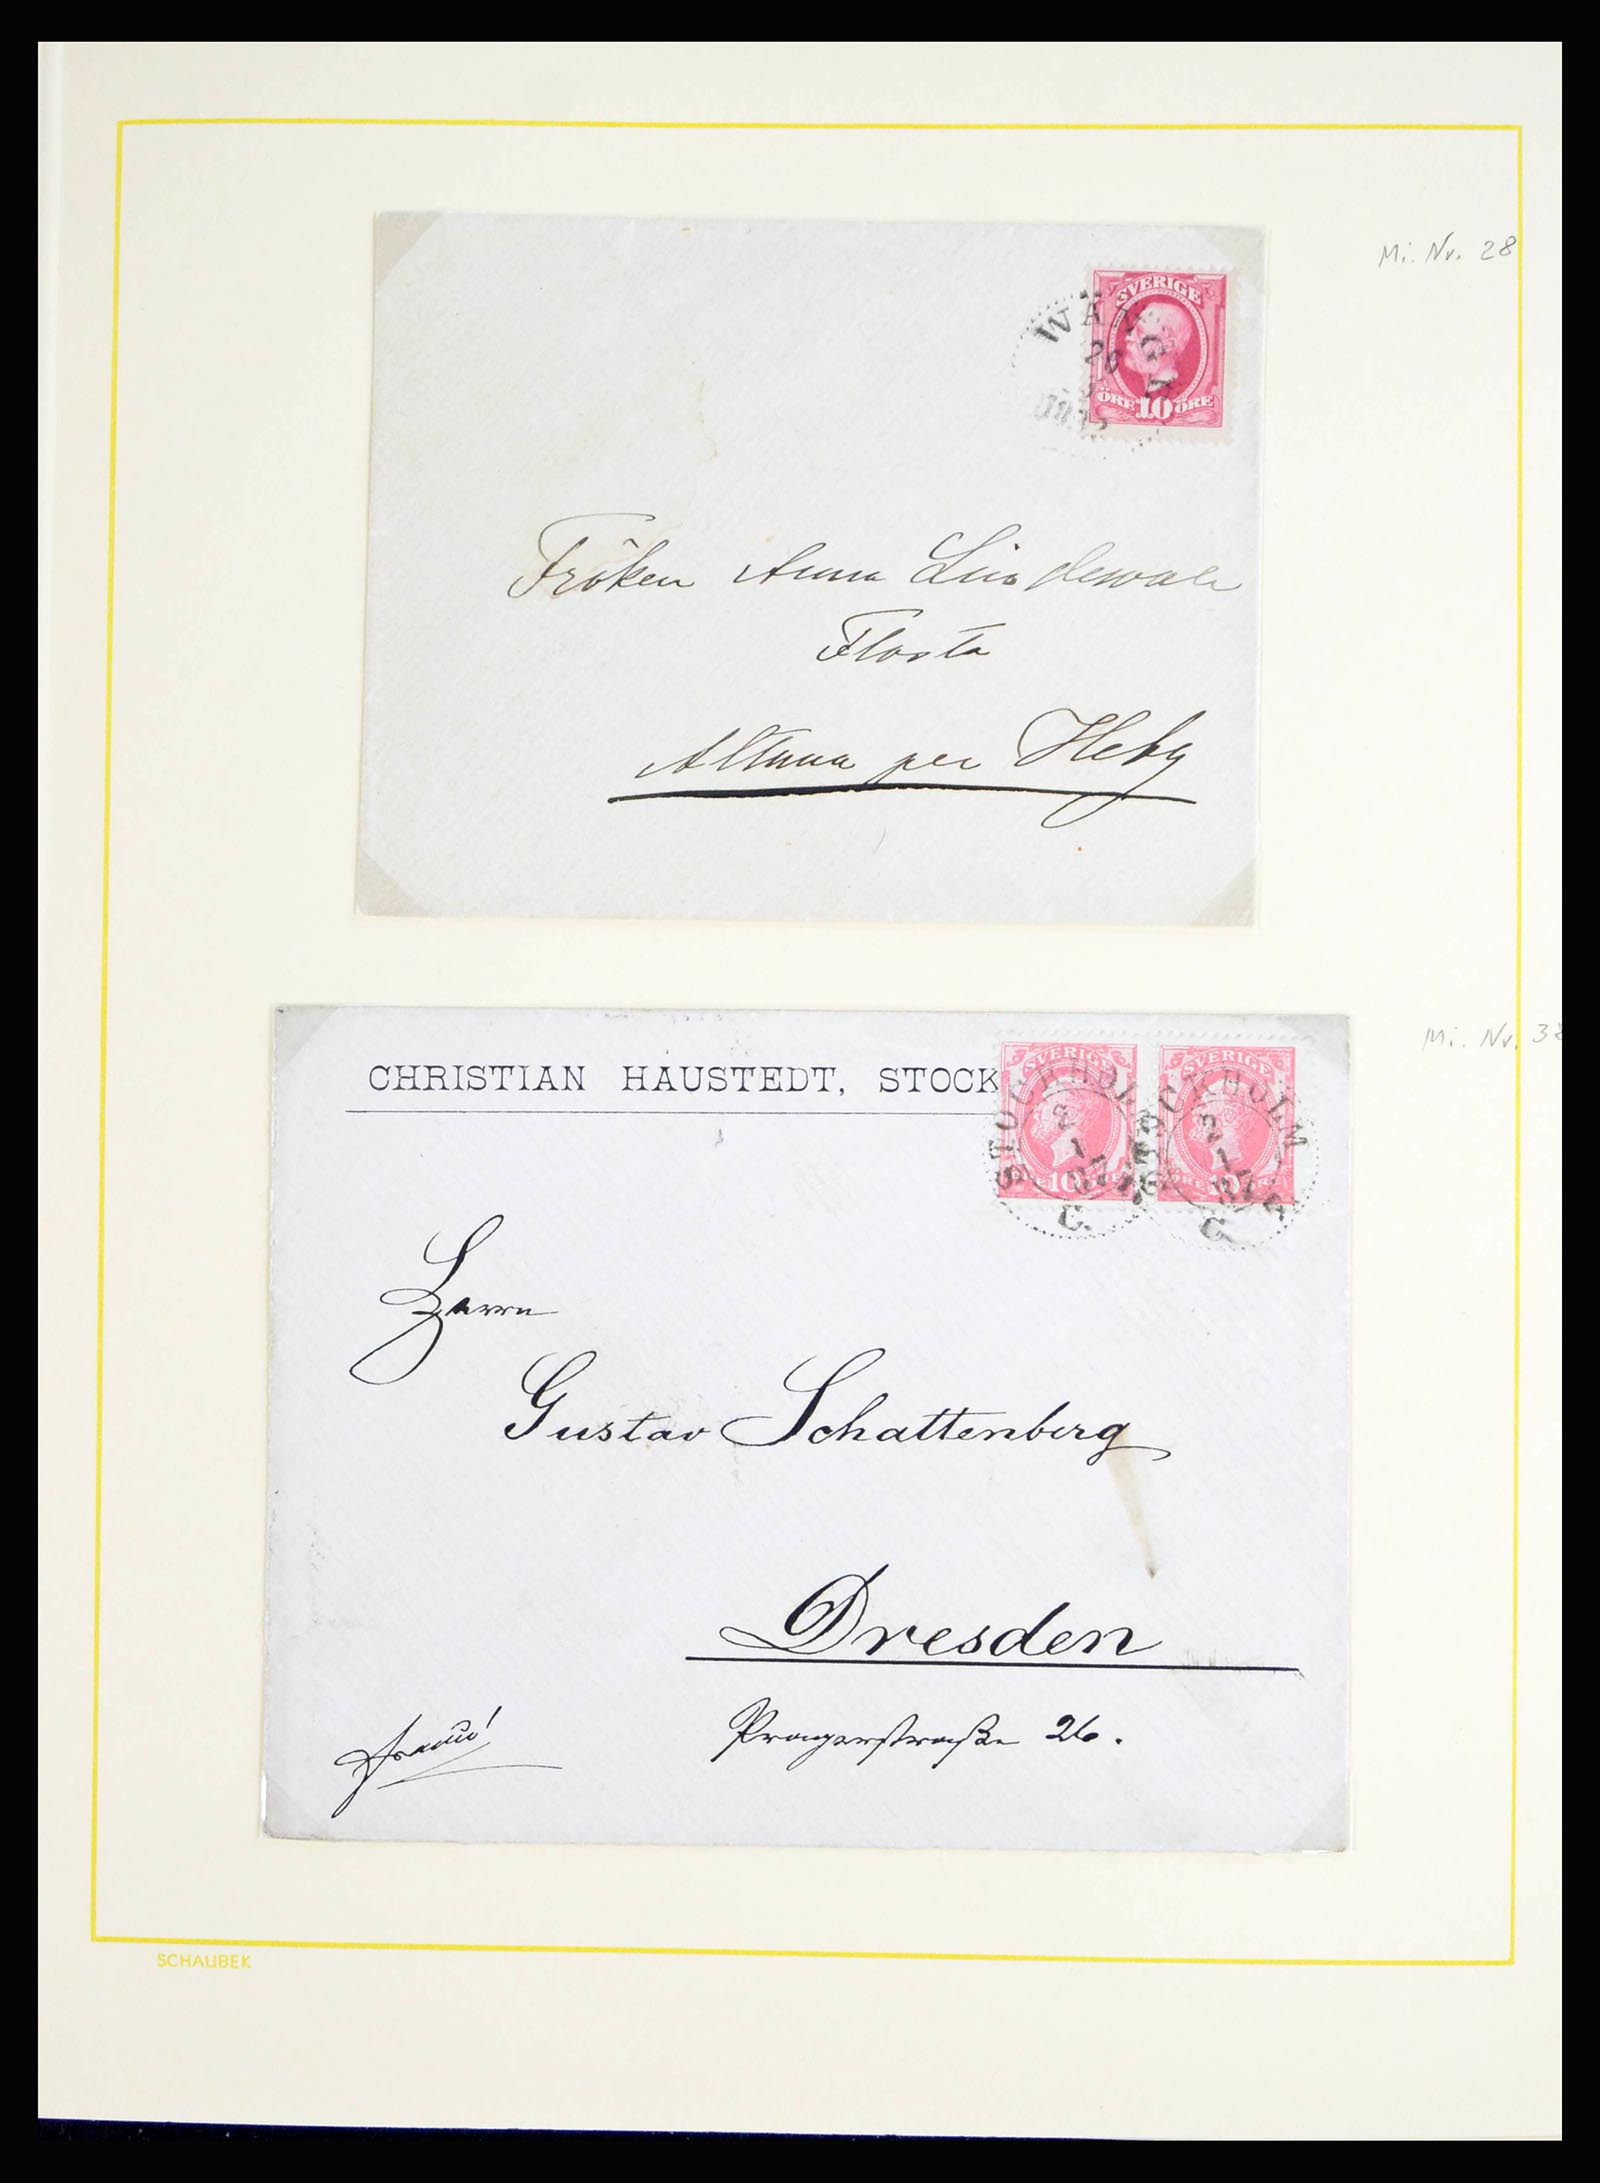 Mi. Nr. 28
SVERIGE
26
ÖRE 10 ÖRE
Fröken Anna Lindewall
Flosta
Altuna per Heby
Mi. Nr. 38
CHRISTIAN HAUSTEDT, STOCK
SVERIGE SVERIGE
STOCKHOLM STOCKHOLM
2 2
1 1
C. C.
Herrn
Gustav Schattenberg
Dresden
Pragerstraße 26.
SCHAUBEK